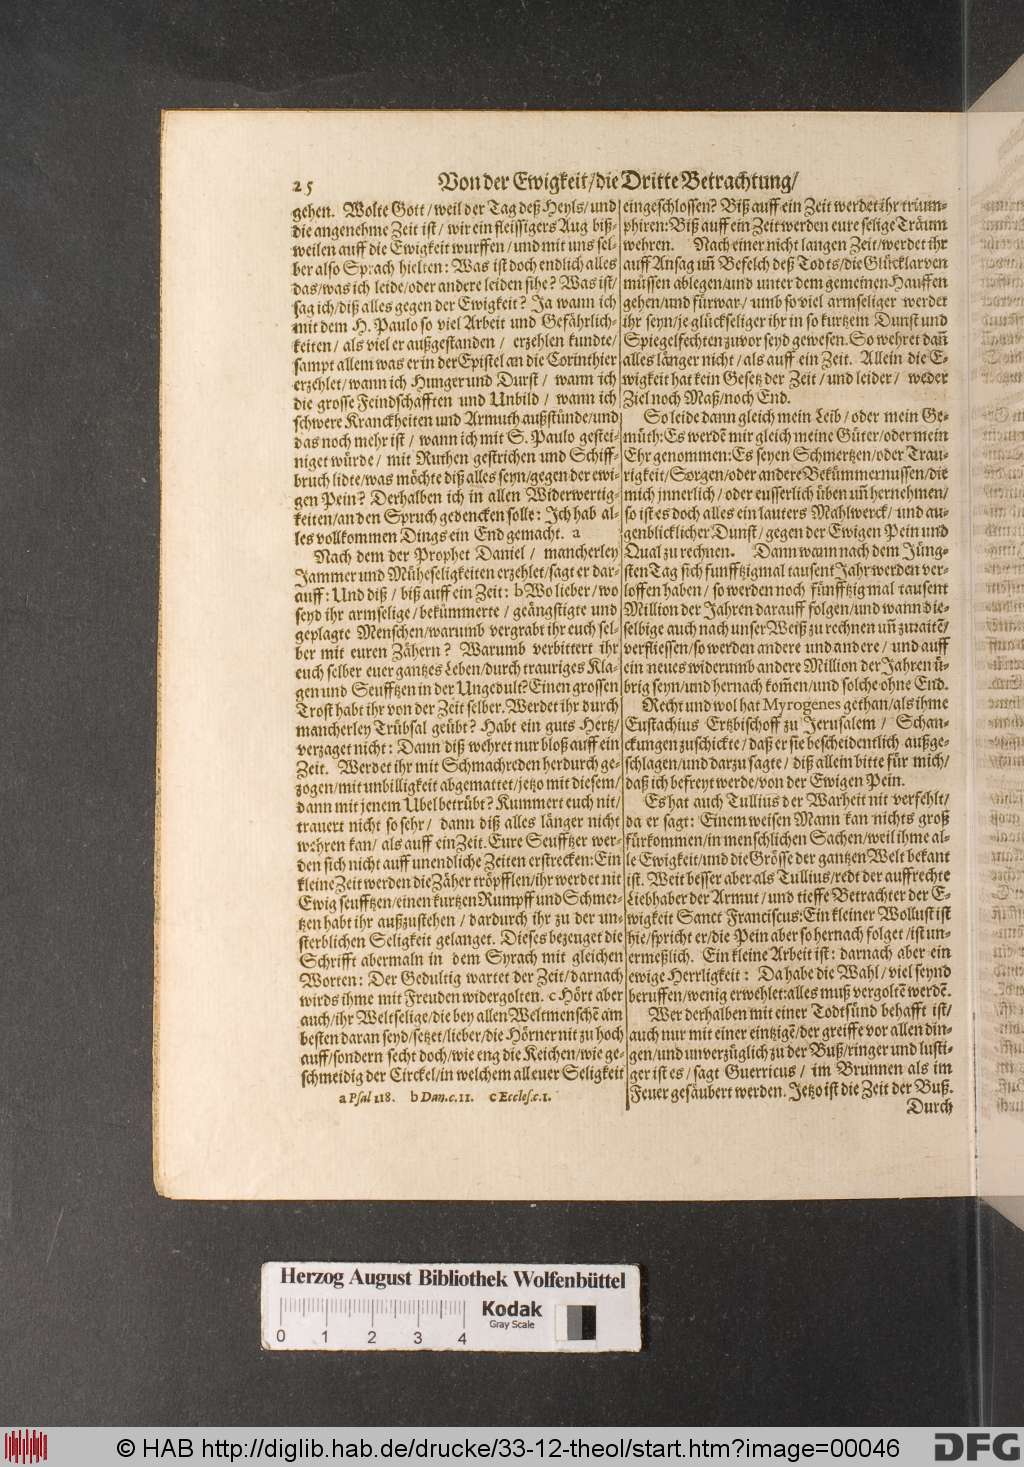 25
Von der Ewigkeit/die Dritte Betrachtung/
gehen. Wolte Gott/weil der Tag deß Heyls/und
die angenehme Zeit ist/ wir ein fleissigers Aug biß-
weilen auff die Ewigkeit wurffen/und mit uns sel-
ber also Sprach hielten: Was ist doch endlich alles
das/was ich leide/oder andere leiden sihe? Was ist/
sag ich/diß alles gegen der Ewigkeit? Ja wann ich
mit dem H. Paulo so viel Arbeit und Gefährlich-
keiten/ als viel er außgestanden/ erzehlen kundte/
sampt allem was er in der Epistel an die Corinthier
erzehlet/wann ich Hunger und Durst/ wann ich
die grosse Feindschafften und Unbild/ wann ich
schwere Kranckheiten und Armuth außstünde/und
das noch mehr ist/ wann ich mit S. Paulo gestei-
niget würde/ mit Ruthen gestrichen und Schiff-
bruch lidte/was möchte diß alles seyn/gegen der ewi-
gen Pein? Derhalben ich in allen Widerwertig-
keiten/an den Spruch gedencken solle: Ich hab al-
les vollkommen Dings ein End gemacht. a
Nach dem der Prophet Daniel/ mancherley
Jammer und Müheseligkeiten erzehlet/sagt er dar-
auff: Und diß/ biß auff ein Zeit: b Wo lieber/wo
seyd ihr armselige/bekümmerte/ geängstigte und
geplagte Menschen/warumb vergrabt ihr euch sel-
ber mit euren Zähern? Warumb verbittert ihr
euch selber euer gantzes Leben/durch trauriges Kla-
gen und Seufftzen in der Ungedult? Einen grossen
Trost habt ihr von der Zeit selber. Werdet ihr durch
mancherley Trübsal geübt? Habt ein guts Hertz/
verzaget nicht: Dann diß wehret nur bloß auff ein
Zeit. Werdet ihr mit Schmachreden herdurch ge-
zogen/mit unbilligkeit abgemattet/jetzo mit diesem/
dann mit jenem Ubel betrübt? Kummert euch nit/
trauert nicht so sehr/ dann diß alles länger nicht
wehren kan/ als auff ein Zeit. Eure Seufftzer wer-
den sich nicht auff unendliche Zeiten erstrecken: Ein
kleine Zeit werden die Zäher tröpfflen/ihr werdet nit
Ewig seufftzen/einen kurtzen Rumpff und Schmer-
tzen habt ihr außzustehen/ dardurch ihr zu der un-
sterblichen Seligkeit gelanget. Dieses bezeuget die
Schrifft abermaln in dem Syrach mit gleichen
Worten: Der Gedultig wartet der Zeit/darnach
wirds ihme mit Freuden widergolten. c Hört aber
auch/ihr Weltselige/die bey allen Weltmenschē am
besten daran seyd/setzet/lieber/die Hörner nit zu hoch
auff/sondern secht doch/wie eng die Keichen/wie ge-
schmeidig der Circkel/in welchem all euer Seligkeit
a Psal 118. b Dan. c. 11. c Eccles. c. 1.
eingeschlossen? Biß auff ein Zeit werdet ihr trium-
phiren: Biß auff ein Zeit werden eure selige Träum
wehren. Nach einer nicht langen Zeit/werdet ihr
auff Ansag uñ Befelch deß Todts/die Glücklarven
müssen ablegen/und unter dem gemeinen Hauffen
gehen/und fürwar/ umb so viel armseliger werdet
ihr seyn/je glückseliger ihr in so kurtzem Dunst und
Spiegelfechten zuvor seyd gewesen. So wehret dañ
alles länger nicht/als auff ein Zeit. Allein die E-
wigkeit hat kein Gesetz der Zeit/und leider/ weder
Ziel noch Maß/noch End.
So leide dann gleich mein Leib/oder mein Ge-
müth: Es werdē mir gleich meine Güter/oder mein
Ehr genommen: Es seyen Schmertzen/oder Trau-
rigkeit/Sorgen/oder andere Bekümmernussen/die
mich jnnerlich/oder eusserlich üben uñ hernehmen/
so ist es doch alles ein lauters Mahlwerck/ und au-
genblicklicher Dunst/gegen der Ewigen Pein und
Qual zu rechnen. Dann wann nach dem Jüng-
sten Tag sich funfftzigmal tausent Jahr werden ver-
loffen haben/so werden noch fünfftzig mal tausent
Million der Jahren darauff folgen/und wann die-
selbige auch nach unser Weiß zu rechnen uñ zuraitē/
verfliessen/so werden andere und andere/ und auff
ein neues widerumb andere Million der Jahren ü-
brig seyn/und hernach kom̃en/und solche ohne End.
Recht und wol hat Myrogenes gethan/als ihme
Eustachius Ertzbischoff zu Jerusalem/ Schan-
ckungen zuschickte/daß er sie bescheidentlich außge-
schlagen/und darzu sagte/ diß allein bitte für mich/
daß ich befreyt werde/von der Ewigen Pein.
Es hat auch Tullius der Warheit nit verfehlt/
da er sagt: Einem weisen Mann kan nichts groß
fürkommen/in menschlichen Sachen/weil ihme al-
le Ewigkeit/und die Grösse der gantzen Welt bekant
ist. Weit besser aber als Tullius/redt der auffrechte
Liebhaber der Armut/ und tieffe Betrachter der E-
wigkeit Sanct Franciscus: Ein kleiner Wollust ist
hie/spricht er/die Pein aber so hernach folget/ist un-
ermeßlich. Ein kleine Arbeit ist: darnach aber ein
ewige Herrligkeit: Da habe die Wahl/viel seynd
beruffen/wenig erwehlet: alles muß vergoltē werdē.
Wer derhalben mit einer Todtsünd behafft ist/
auch nur mit einer eintzigē/der greiffe vor allen din-
gen/und unverzüglich zu der Buß/ringer und lusti-
ger ist es/sagt Guerricus/ im Brunnen als im
Feuer gesäubert werden. Jetzo ist die Zeit der Buß.
Durch
Herzog August Bibliothek Wolfenbüttel
Kodak
Gray Scale
0 1 2 3 4
© HAB http://diglib.hab.de/drucke/33-12-theol/start.htm?image=00046
DFG